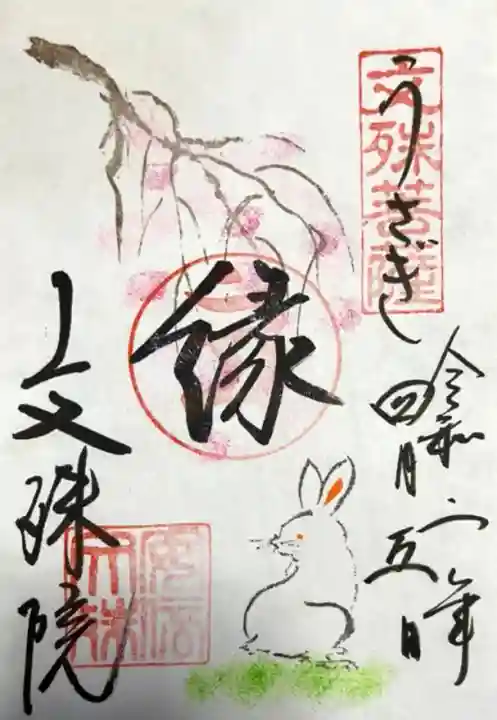 文殊菩薩
うさぎし
令和二年
四月五日
縁
文殊院